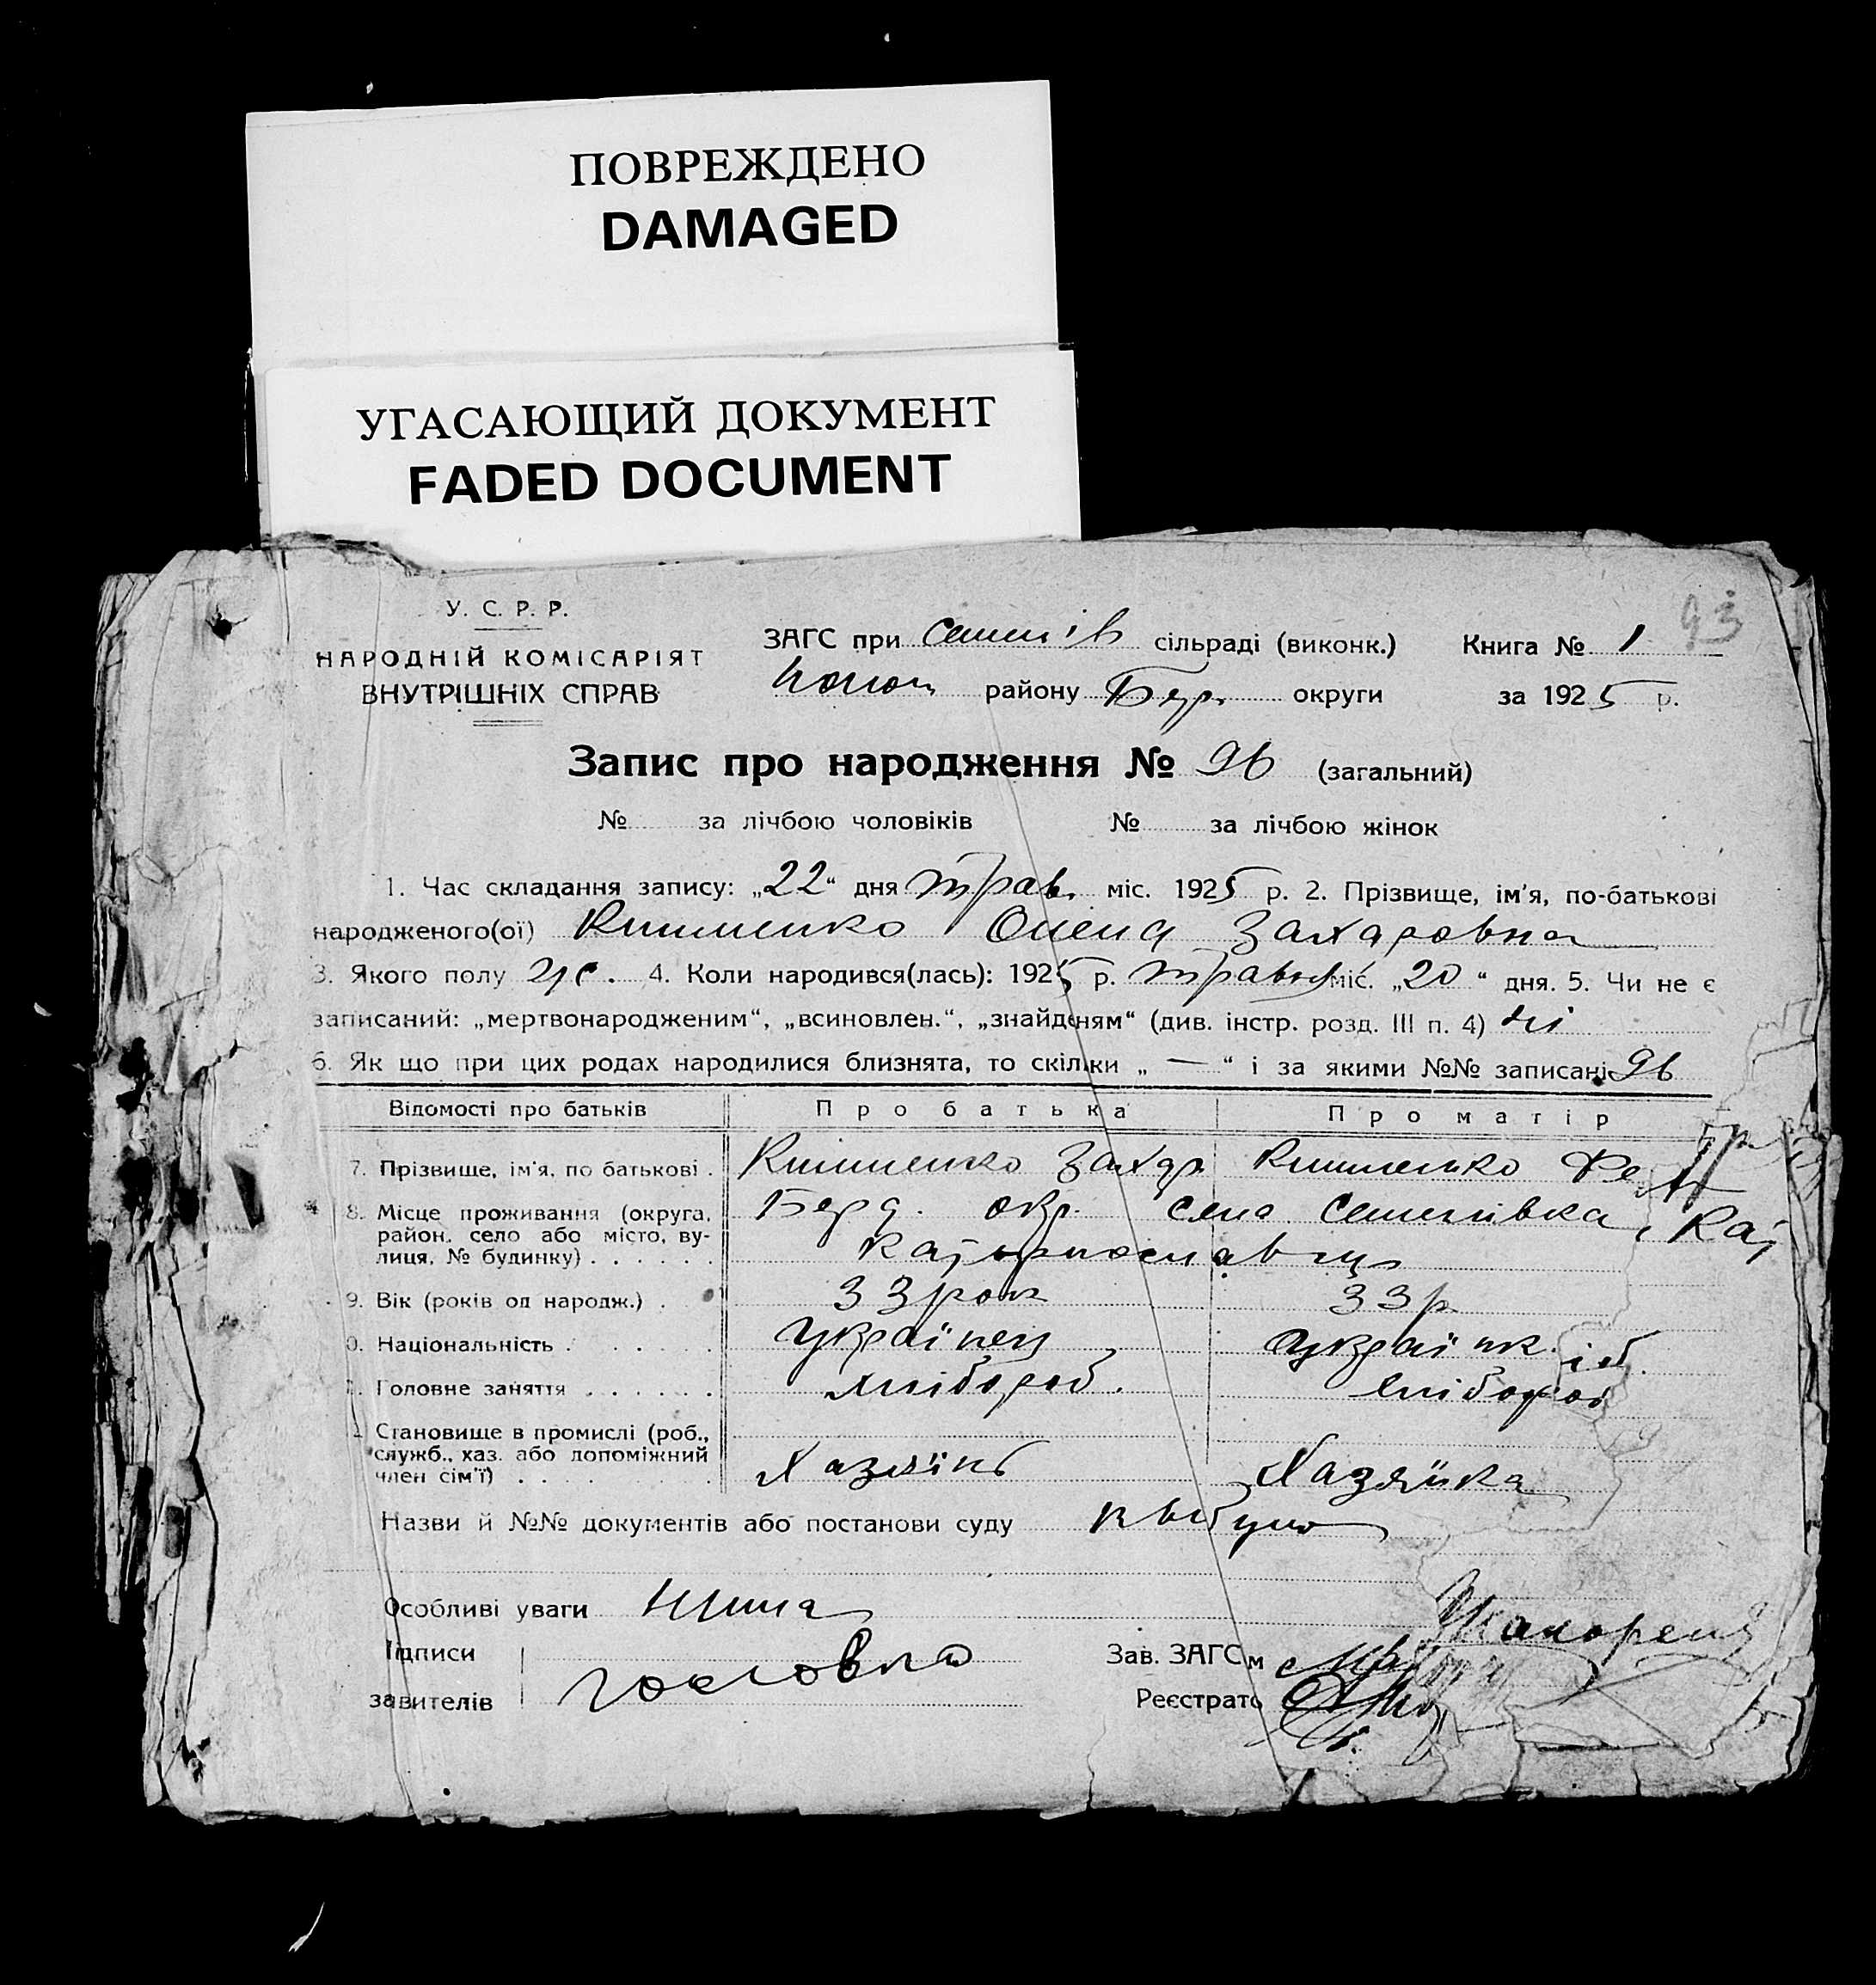 ПОВРЕЖДЕНО
DAMAGED
УГАСАЮЩИЙ ДОКУМЕНТ
FADED DOCUMENT
93
У. С. Р. Р.
НАРОДНІЙ КОМІСАРІЯТ
ВНУТРІШНІХ СПРАВ
ЗАГС при Семенів сільраді (виконк.) Книга № 1
району округи за 1925 р.
Запис про народження № 96 (загальний)
№ за лічбою чоловіків № за лічбою жінок
1. Час складання запису: „22“ дня трав. міс. 1925 р. 2. Прізвище, ім'я, по-батькові
народженого(ої) Клименко Олена Захаровна
3. Якого полу 4. Коли народився(лась): 1925 р. травня міс. „20“ дня. 5. Чи не є
записаний: „мертвонародженим“, „всиновлен.“, „знайденям“ (див. інстр. розд. III п. 4) ні
6. Як що при цих родах народилися близнята, то скільки „ — “ і за якими №№ записані 96
Відомості про батьків Про батька Про матір
7. Прізвище, ім'я, по батькові . Клименко Захар Клименко
8. Місце проживання (округа, район, село або місто, вулиця, № будинку) . . . . . . Берд. окр. села Семенівка,
9. Вік (років од народж.) . 33 рок 33 р
0. Національність . . . . . Українец Україник
Головне заняття . . . . . . хлібороб. хлібороб
Становище в промислі (роб., служб., хаз. або допоміжний член сім'ї) . . . Хазяїнь Хазяйка
Назви й №№ документів або постанови суду
Особливі уваги Нима
Підписи
завителів
Зав. ЗАГС'м
Реєстрато